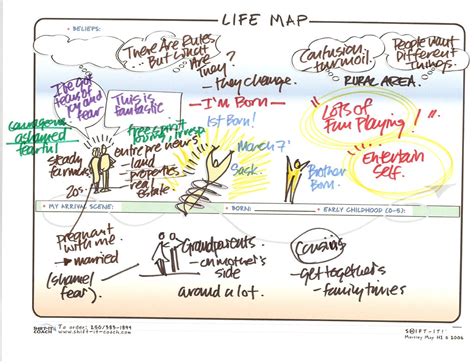 LIFE MAP
• BELIEFS:
There Are Rules
... But What
Are
They?
- they change.
Confusion,
turmoil.
RURAL AREA.
People want
Different
Things.
I've got
fear of
joy and
fear
This is
fantastic
Courageous
ashamed
fearful
steady
farmers
20s.
free spirit
entrepreneurs
- land
properties
- real
estate
- I'm Born -
1st Born!
March 7
Sask.
"Lots of
fun Playing!"
Entertain
self.
Brother
Born.
• MY ARRIVAL SCENE:
• BORN:
• EARLY CHILDHOOD (0-5):
pregnant
with me.
→ married
(shame/
fear)
Grandparents
- on mother's
side
around a lot.
Cousins
- get togethers
- family times
SHIFT-IT
COACH
To order: 250/383-1844
www.shift-it-coach.com
SHIFT-IT!